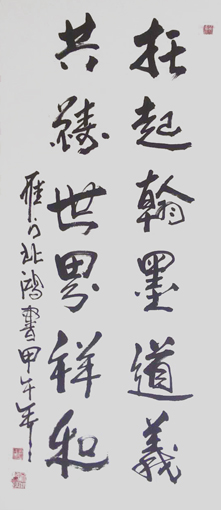 托起翰墨道義
共鑄世界祥和
雁門北鴻書甲午年